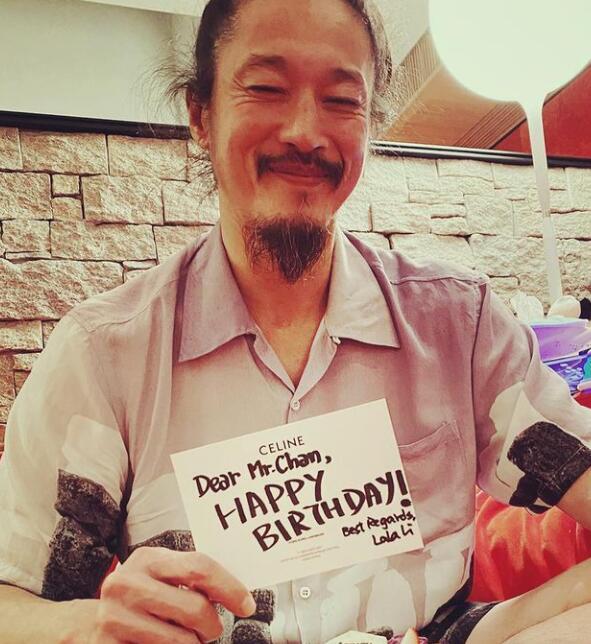 CELINE
Dear Mr. Chan,
HAPPY
BIRTHDAY!
Best Regards,
Lala Li